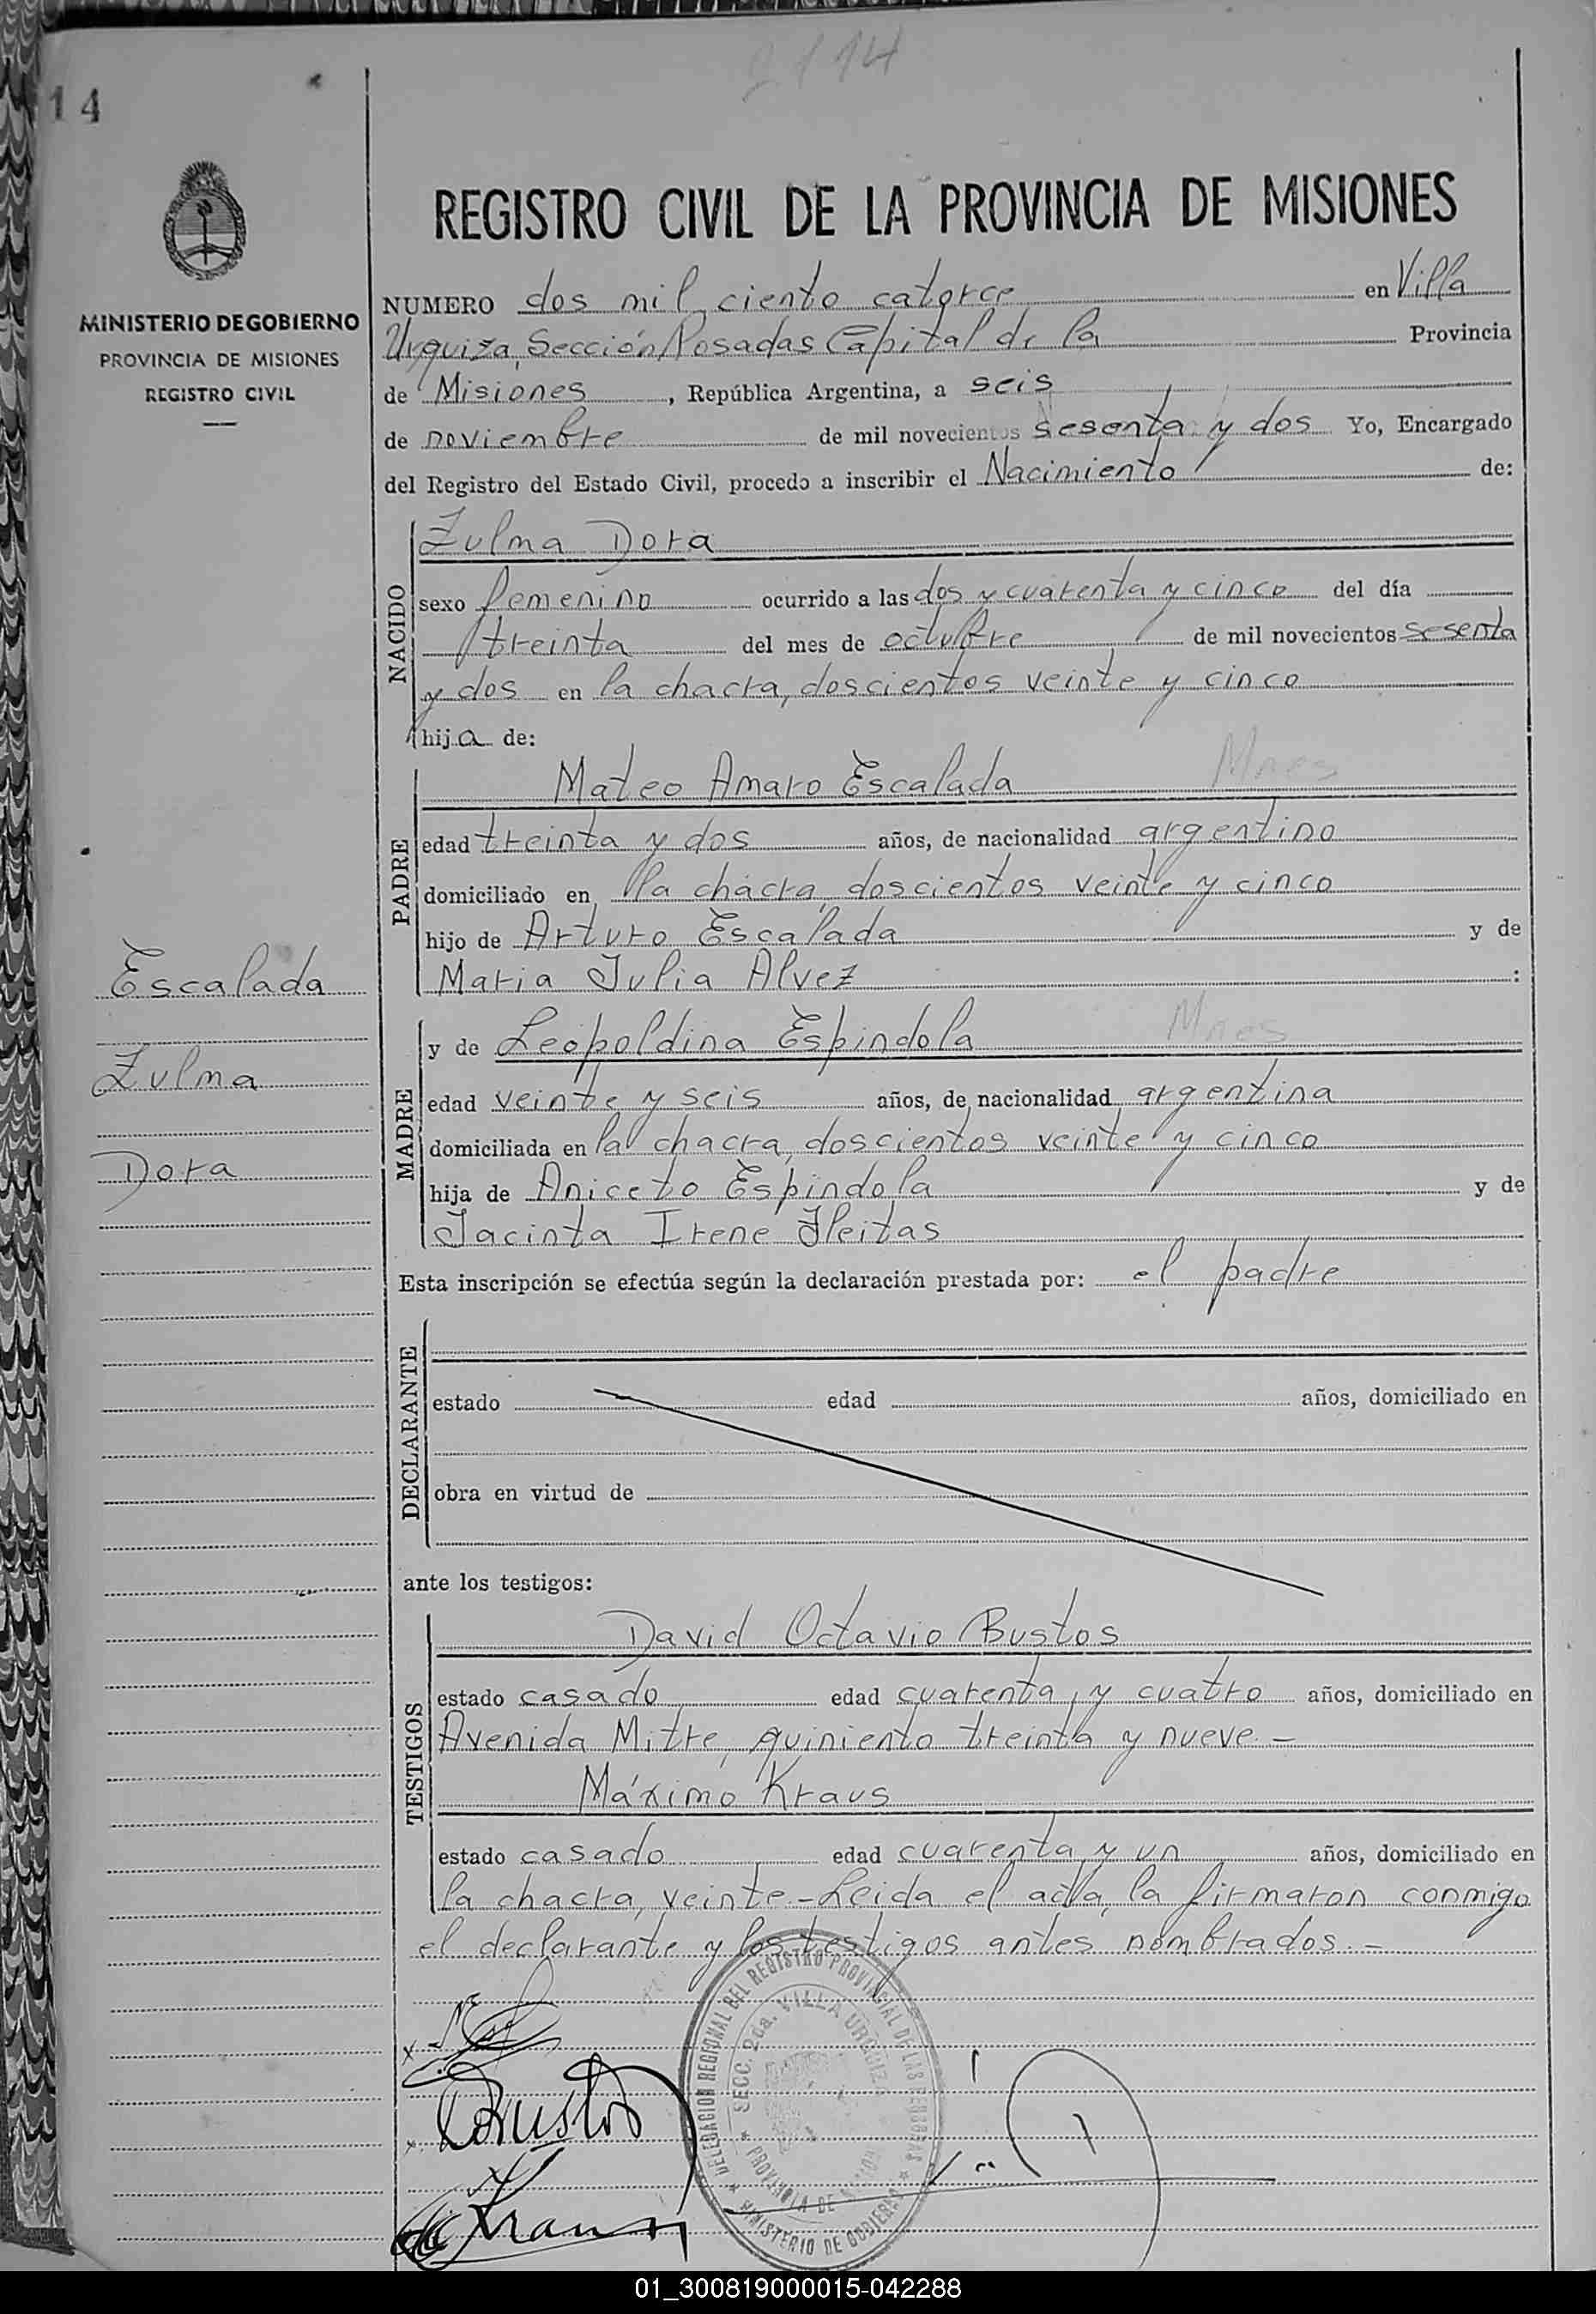 2114
14
REGISTRO CIVIL DE LA PROVINCIA DE MISIONES
MINISTERIO DE GOBIERNO
PROVINCIA DE MISIONES
REGISTRO CIVIL
NUMERO dos mil ciento catorce en Villa
Urquiza, Sección Posadas Capital de la Provincia
de Misiones, República Argentina, a seis
de noviembre de mil novecientos sesenta y dos Yo, Encargado
del Registro del Estado Civil, procedo a inscribir el Nacimiento de:
NACIDO
Zulma Dora
sexo femenino ocurrido a las dos y cuarenta y cinco del día
treinta del mes de octubre de mil novecientos sesenta
y dos en la chacra, doscientos veinte y cinco
hija de:
PADRE
Mateo Amaro Escalada Mnes
edad treinta y dos años, de nacionalidad argentino
domiciliado en la chacra, doscientos veinte y cinco
hijo de Arturo Escalada y de
Maria Julia Alvez :
MADRE
y de Leopoldina Espindola Mnes
edad veinte y seis años, de nacionalidad argentina
domiciliada en la chacra, doscientos veinte y cinco
hija de Aniceto Espindola y de
Jacinta Irene Fleitas
Escalada
Zulma
Dora
Esta inscripción se efectúa según la declaración prestada por: el padre
DECLARANTE
estado edad años, domiciliado en
obra en virtud de
ante los testigos:
TESTIGOS
David Octavio Bustos
estado casado edad cuarenta y cuatro años, domiciliado en
Avenida Mitre, quiniento treinta y nueve.-
Máximo Kraus
estado casado edad cuarenta y un años, domiciliado en
la chacra, veinte.-Leida el acta, la firmaron conmigo
el declarante y los testigos antes nombrados.-
DELEGACION REGIONAL DEL REGISTRO PROVINCIAL DE LAS PERSONAS
SECC. 2da. VILLA URQUIZA
PROVINCIA DE MISIONES
MINISTERIO DE GOBIERNO
Bustos
Kraus
01_300819000015-042288